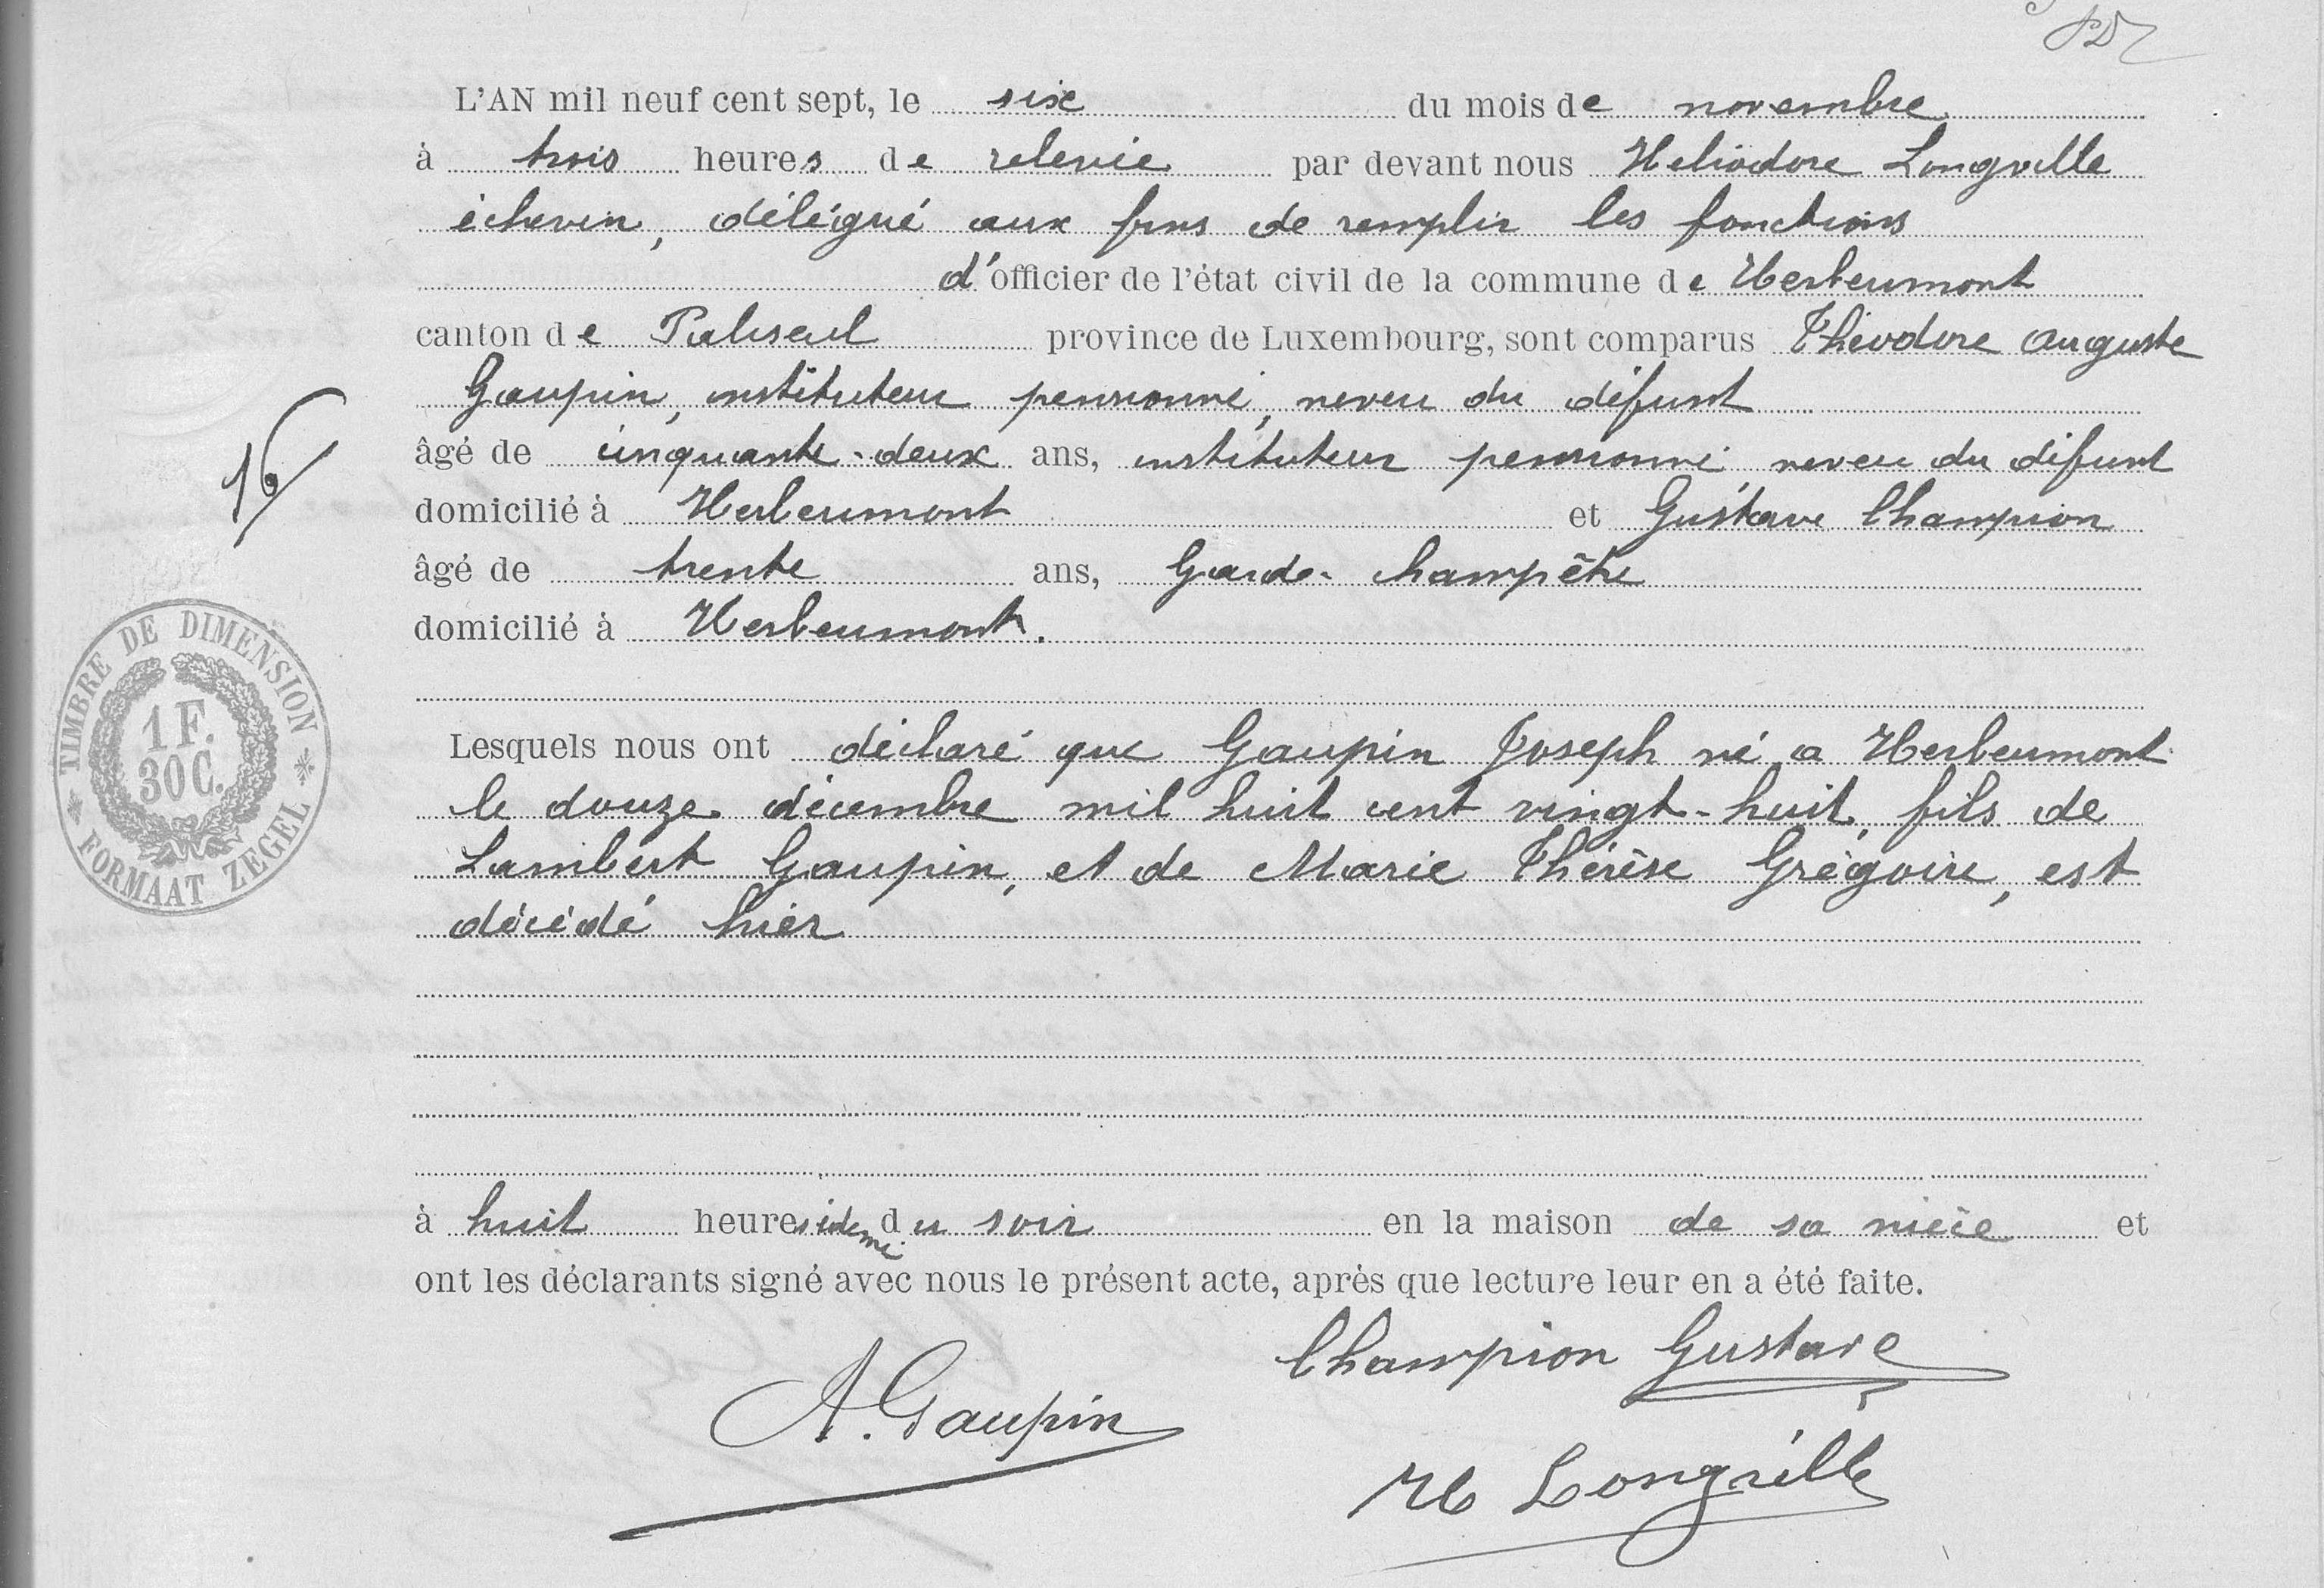 L'AN mil neuf cent sept, le six du mois de novembre
à trois heures de relevée par devant nous Heliodore Longville
échevin, délégué aux fins de remplir les fonctions
d'officier de l'état civil de la commune de Herbeumont
canton de Paliseul province de Luxembourg, sont comparus Théodore Auguste
Gaupin, instituteur pensionné, neveu du défunt
âgé de cinquante-deux ans, instituteur pensionné neveu du défunt
16
domicilié à Herbeumont et Gustave Champion
âgé de trente ans, Garde-champêtre
domicilié à Herbeumont.
TIMBRE DE DIMENSION
1 F.
30 C.
FORMAAT ZEGEL
Lesquels nous ont déclaré que Gaupin Joseph né a Herbeumont
le douze décembre mil huit cent vingt-huit, fils de
Lambert Gaupin, et de Marie Thérèse Grégoire, est
décédé hier
à huit heures et demi du soir en la maison de sa nièce et
ont les déclarants signé avec nous le présent acte, après que lecture leur en a été faite.
Champion Gustave
A. Gaupin
H Longville